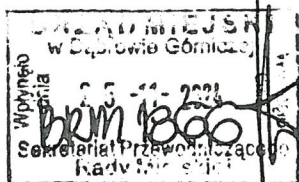 URZĄD MIEJSKI
w Dąbrowie Górniczej
Wpłynęło
dnia
25 -11- 2024
BRM 1866
Sekretariat Przewodniczącego
Rady Miejskiej